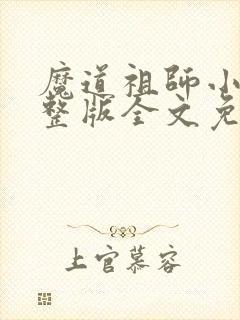 魔道祖师小
整版全文免
上官慕容